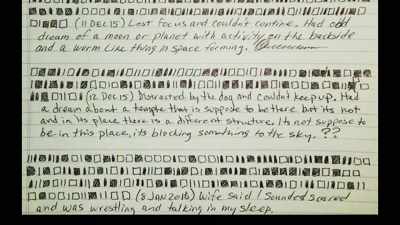 (11 DEC 15) Lost focus and couldnt contine. Had odd
dream of a moon or planet with activity on the backside
and a worm like thing in space forming.
(12 DEC 15) Distracted by the dog and couldnt keep up. Had
a dream about a temple that is suppose to be there but its not
and in its place there is a different structure. Its not suppose to
be in this place, its blocking something to the sky. ??
(8 JAN 2016) Wife said I sounded scared
and was wrestling and talking in my sleep.